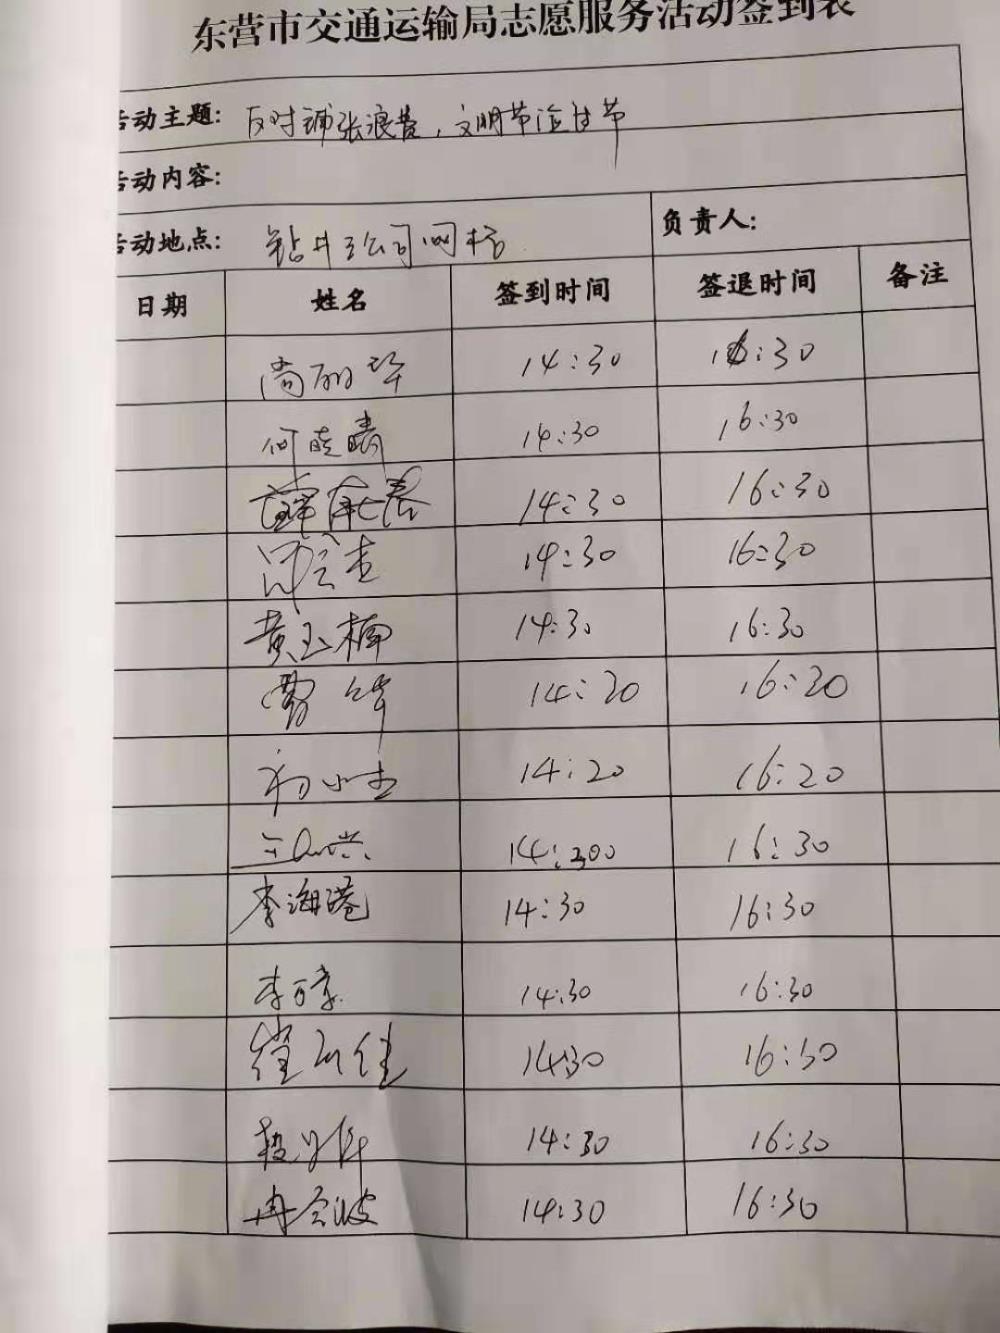 东营市交通运输局志愿服务活动签到表
活动主题: 反对铺张浪费，文明节俭过节
活动内容:
活动地点: 钻井五公司网格 负责人:
日期 姓名 签到时间 签退时间 备注
尚丽华 14:30 16:30
何晓晴 14:30 16:30
薛 春 14:30 16:30
14:30 16:30
黄玉楠 14:30 16:30
14:20 16:20
初小杰 14:20 16:20
14:300 16:30
李海港 14:30 16:30
李 14:30 16:30
佳 14:30 16:30
14:30 16:30
冉会波 14:30 16:30